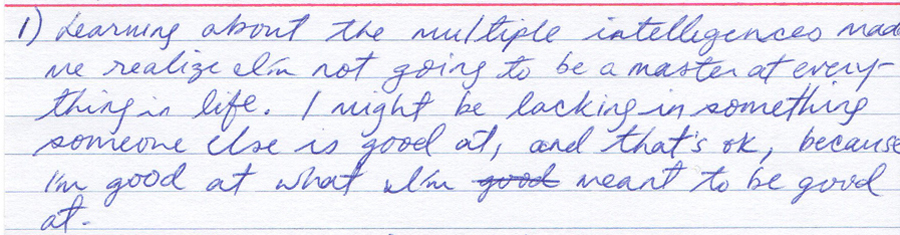 1) Learning about the multiple intelligences mad
me realize I'm not going to be a master at every-
thing in life. I might be lacking in something
someone else is good at, and that's ok, because
I'm good at what I'm good meant to be good
at.